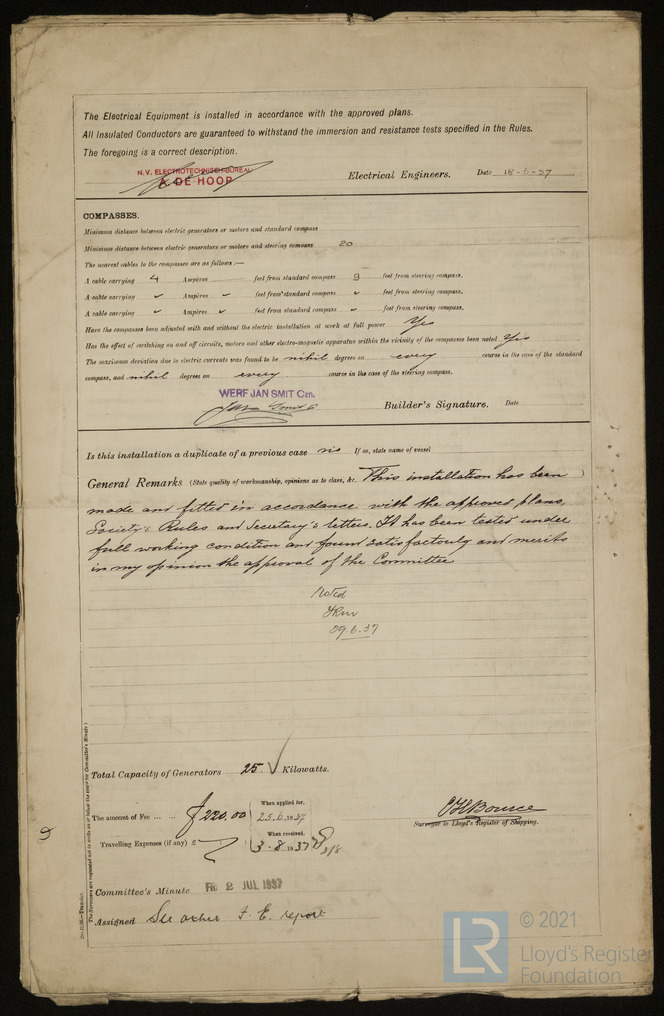 The Electrical Equipment is installed in accordance with the approved plans.
All Insulated Conductors are guaranteed to withstand the immersion and resistance tests specified in the Rules.
The foregoing is a correct description.
N.V. ELECTROTECHNISCH-BUREAU
DE HOOP Electrical Engineers. Date 18-6-37
COMPASSES.
Minimum distance between electric generators or motors and standard compass
Minimum distance between electric generators or motors and steering compass 20
The nearest cables to the compasses are as follows:—
A cable carrying 4 Ampères feet from standard compass 9 feet from steering compass.
A cable carrying Ampères feet from standard compass feet from steering compass.
A cable carrying Ampères feet from standard compass feet from steering compass.
Have the compasses been adjusted with and without the electric installation at work at full power Yes
Has the effect of switching on and off circuits, motors and other electro-magnetic apparatus within the vicinity of the compasses been noted Yes
The maximum deviation due to electric currents was found to be nihil degrees on every course in the case of the standard
compass, and nihil degrees on every course in the case of the steering compass.
WERF JAN SMIT Czn.
Jan Smit Builder's Signature. Date
Is this installation a duplicate of a previous case no If so, state name of vessel
General Remarks (State quality of workmanship, opinions as to class, &c. This installation has been )
made and fitted in accordance with the approved plans,
Society's Rules and Secretary's letters. It has been tested under
full working condition and found satisfactorily and merits
in my opinion the approval of the Committee
Noted
29.6.37
Total Capacity of Generators 25. Kilowatts.
The amount of Fee ... ... ƒ 220.00 When applied for, 25.6.1937
Travelling Expenses (if any) £ When received, 3-8-1937 3/8
Surveyor to Lloyd's Register of Shipping.
Committee's Minute FRI 2 JUL 1937
Assigned See other F. E. report
The Surveyors are requested not to write on or below the space for Committee's Minute.)
© 2021
LR
Lloyd's Register
Foundation